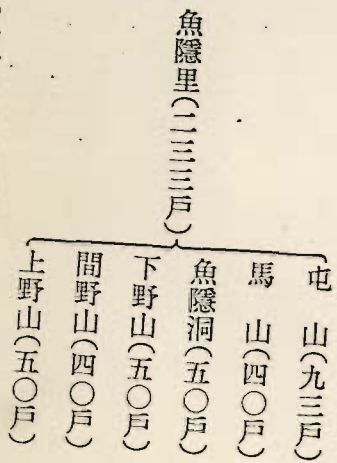 魚隱里(二三三戶)
屯　山(九三戶)
馬　山(四〇戶)
魚隱洞(五〇戶)
下野山(五〇戶)
間野山(四〇戶)
上野山(五〇戶)